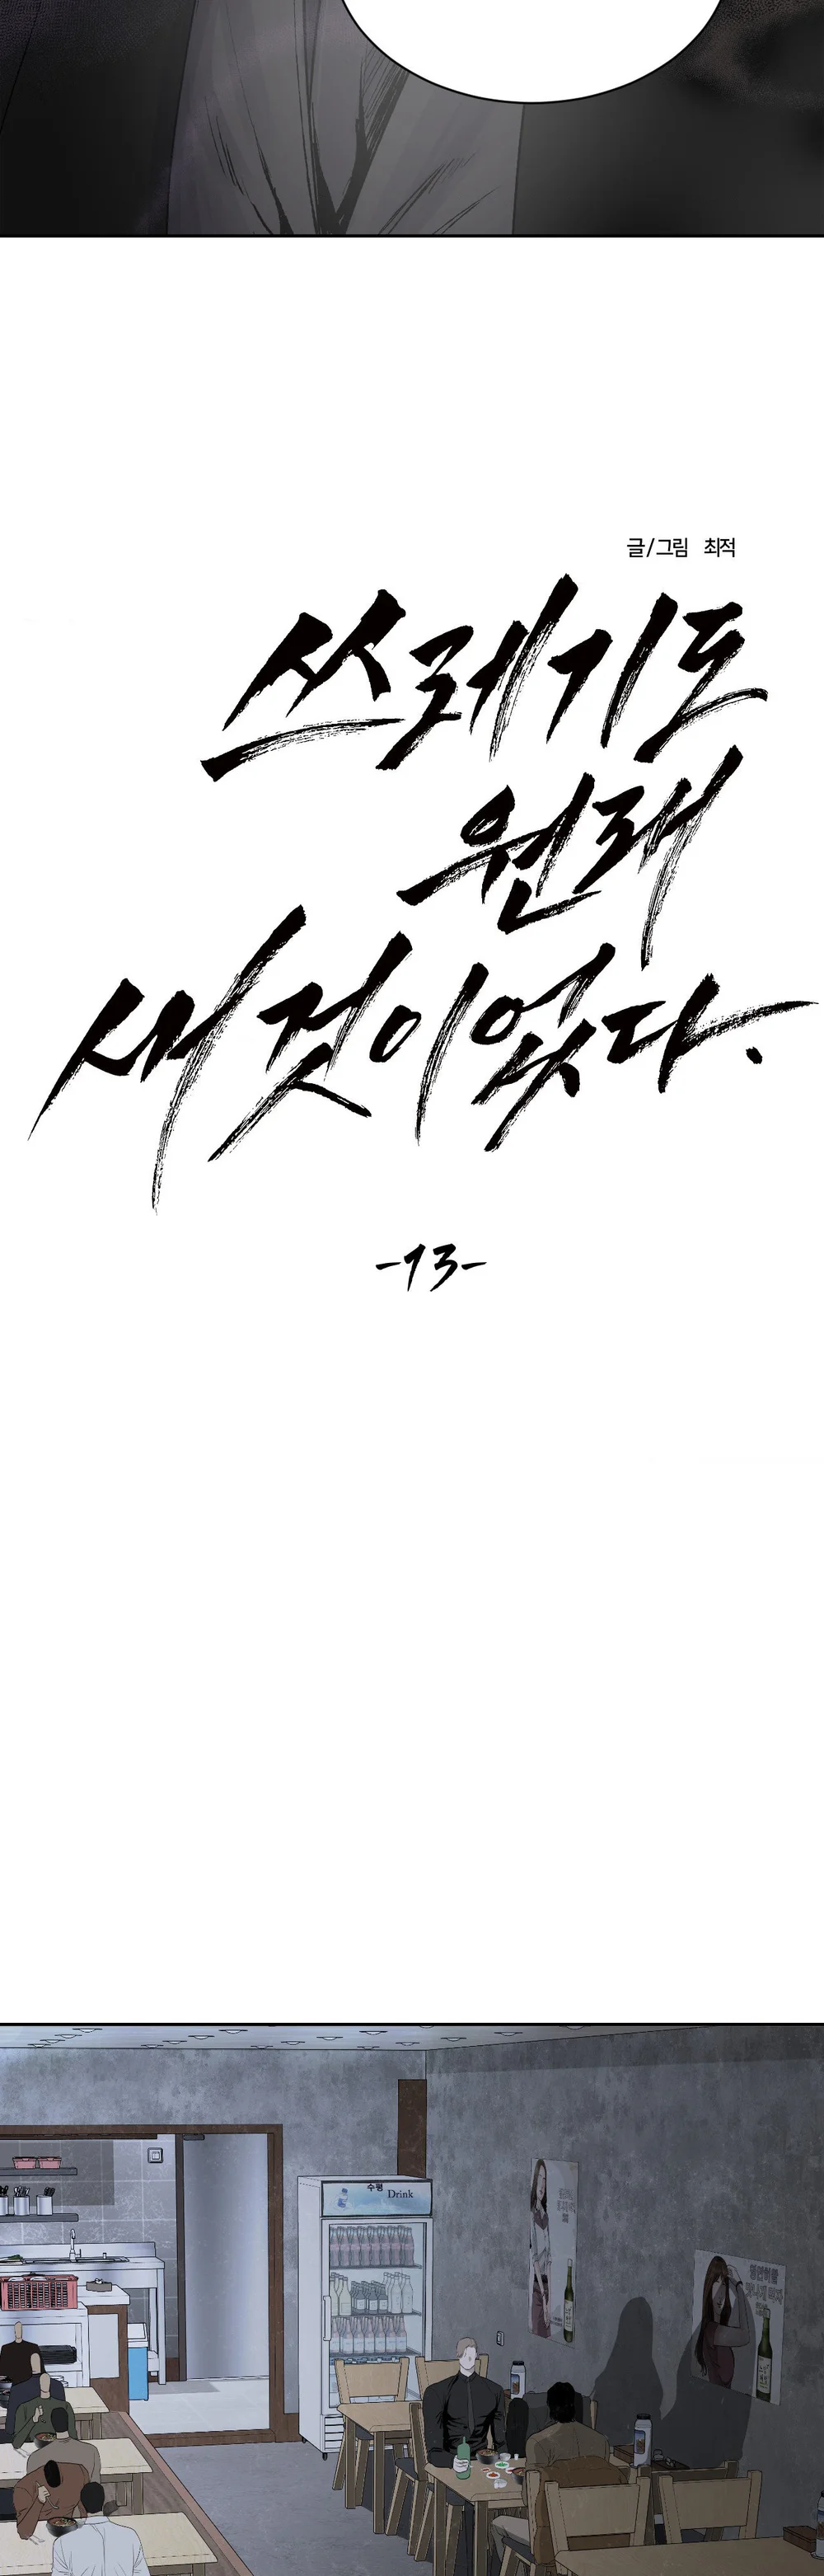 글/그림 최적
쓰레기도
원래
새것이었다.
-13-
수평 Drink